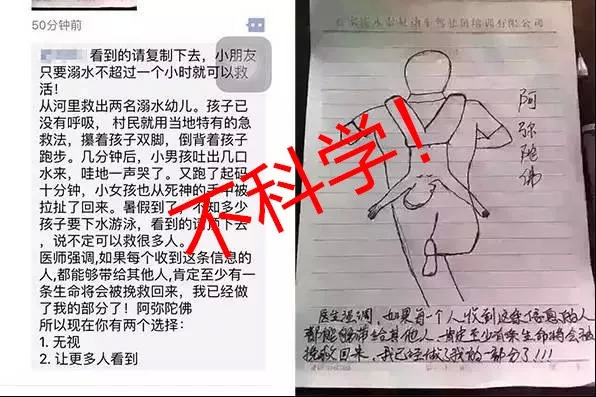 50分钟前
看到的请复制下去，小朋友
只要溺水不超过一个小时就可以救
活！
从河里救出两名溺水幼儿。孩子已
没有呼吸，村民就用当地特有的急
救法，攥着孩子双脚，倒背着孩子
跑步。几分钟后，小男孩吐出几口
水来，哇地一声哭了。又跑了起码
十分钟，小女孩也从死神的手中被
拉扯了回来。暑假到了，不知多少
孩子要下水游泳，看到的请顶下去
，说不定可以救很多人。
医师强调,如果每个收到这条信息的
人,都能够带给其他人,肯定至少有一
条生命将会被挽救回来，我已经做
了我的部分了！阿弥陀佛
所以现在你有两个选择：
1. 无视
2. 让更多人看到
不科学！
阿弥陀佛
医生强调，如果每一个人收到这条信息的人
都能够带给其他人，肯定至少有一条生命将会被
挽救回来，我已经做了我的一部分了!!!